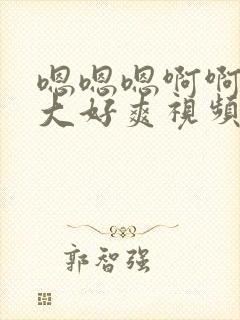 嗯嗯嗯啊啊
大好爽視頻
郭智强